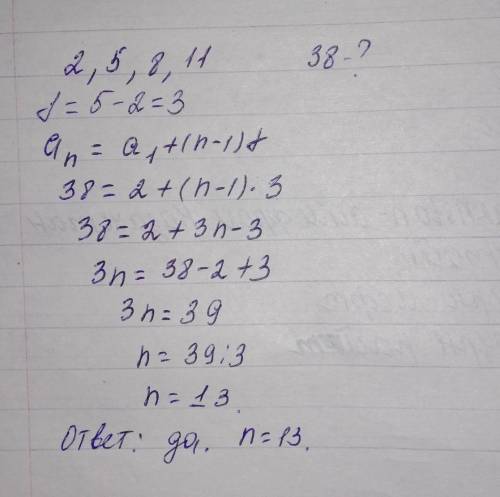 2, 5, 8, 11 38-?
d = 5-2=3
an = a1+(n-1)d
38 = 2 + (n-1)·3
38 = 2 + 3n-3
3n = 38-2+3
3n = 39
n = 39:3
n = 13.
Ответ: да. n=13.